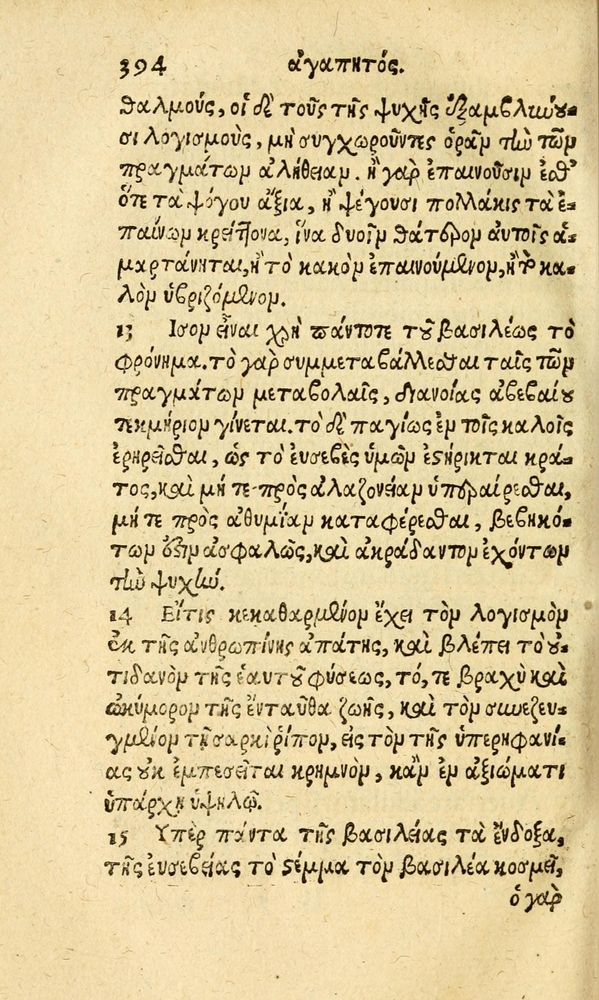 394 ἀγαπητός.
θαλμούς, οἱ δὲ τοὺς τῆς ψυχῆς ἐξαμβλύου-
σι λογισμοὺς, μὴ συγχωροῦντες ὁρᾶν τὴν τῶν
πραγμάτων ἀλήθειαν. ἢ γὰρ ἐπαινοῦσιν ἔσθ᾽
ὅτε τὰ ψόγου ἄξια, ἢ ψέγουσι πολλάκις τὰ ἐ-
παίνων κρείττονα, ἵνα δυοῖν θάτερον αὐτοῖς ἁ-
μαρτάνηται, ἢ τὸ κακὸν ἐπαινούμενον, ἢ τὸ κα-
λὸν ὑβριζόμενον.
13 Ισον εἶναι χρὴ πάντοτε τοῦ βασιλέως τὸ
φρόνημα. τὸ γὰρ συμμεταβάλλεσθαι ταῖς τῶν
πραγμάτων μεταβολαῖς, διανοίας ἀβεβαίου
τεκμήριον γίνεται. τὸ δὲ παγίως ἐν τοῖς καλοῖς
ἐρηρεῖσθαι, ὡς τὸ εὐσεβὲς ὑμῶν ἐστήρικται κρά-
τος, καὶ μήτε πρὸς ἀλαζονείαν ὑπεραίρεσθαι,
μήτε πρὸς ἀθυμίαν καταφέρεσθαι, βεβηκό-
των ἐστὶν ἀσφαλῶς, καὶ ἀκράδαντον ἐχόντων
τὴν ψυχήν.
14 Εἴτις κεκαθαρμένον ἔχει τὸν λογισμὸν
ἐκ τῆς ἀνθρωπίνης ἀπάτης, καὶ βλέπει τὸ οὐ-
τιδανὸν τῆς ἑαυτοῦ φύσεως, τό, τε βραχὺ καὶ
ὠκύμορον τῆς ἐνταῦθα ζωῆς, καὶ τὸν συνεζευ-
γμένον τῇ σαρκὶ ῥύπον, εἰς τὸν τῆς ὑπερηφανί-
ας οὐκ ἐμπεσεῖται κρημνὸν, κἂν ἐν ἀξιώματι
ὑπάρχῃ ὑψηλῷ.
15 Υπὲρ πάντα τῆς βασιλείας τὰ ἔνδοξα,
τῆς εὐσεβείας τὸ στέμμα τὸν βασιλέα κοσμεῖ,
ὁ γὰρ